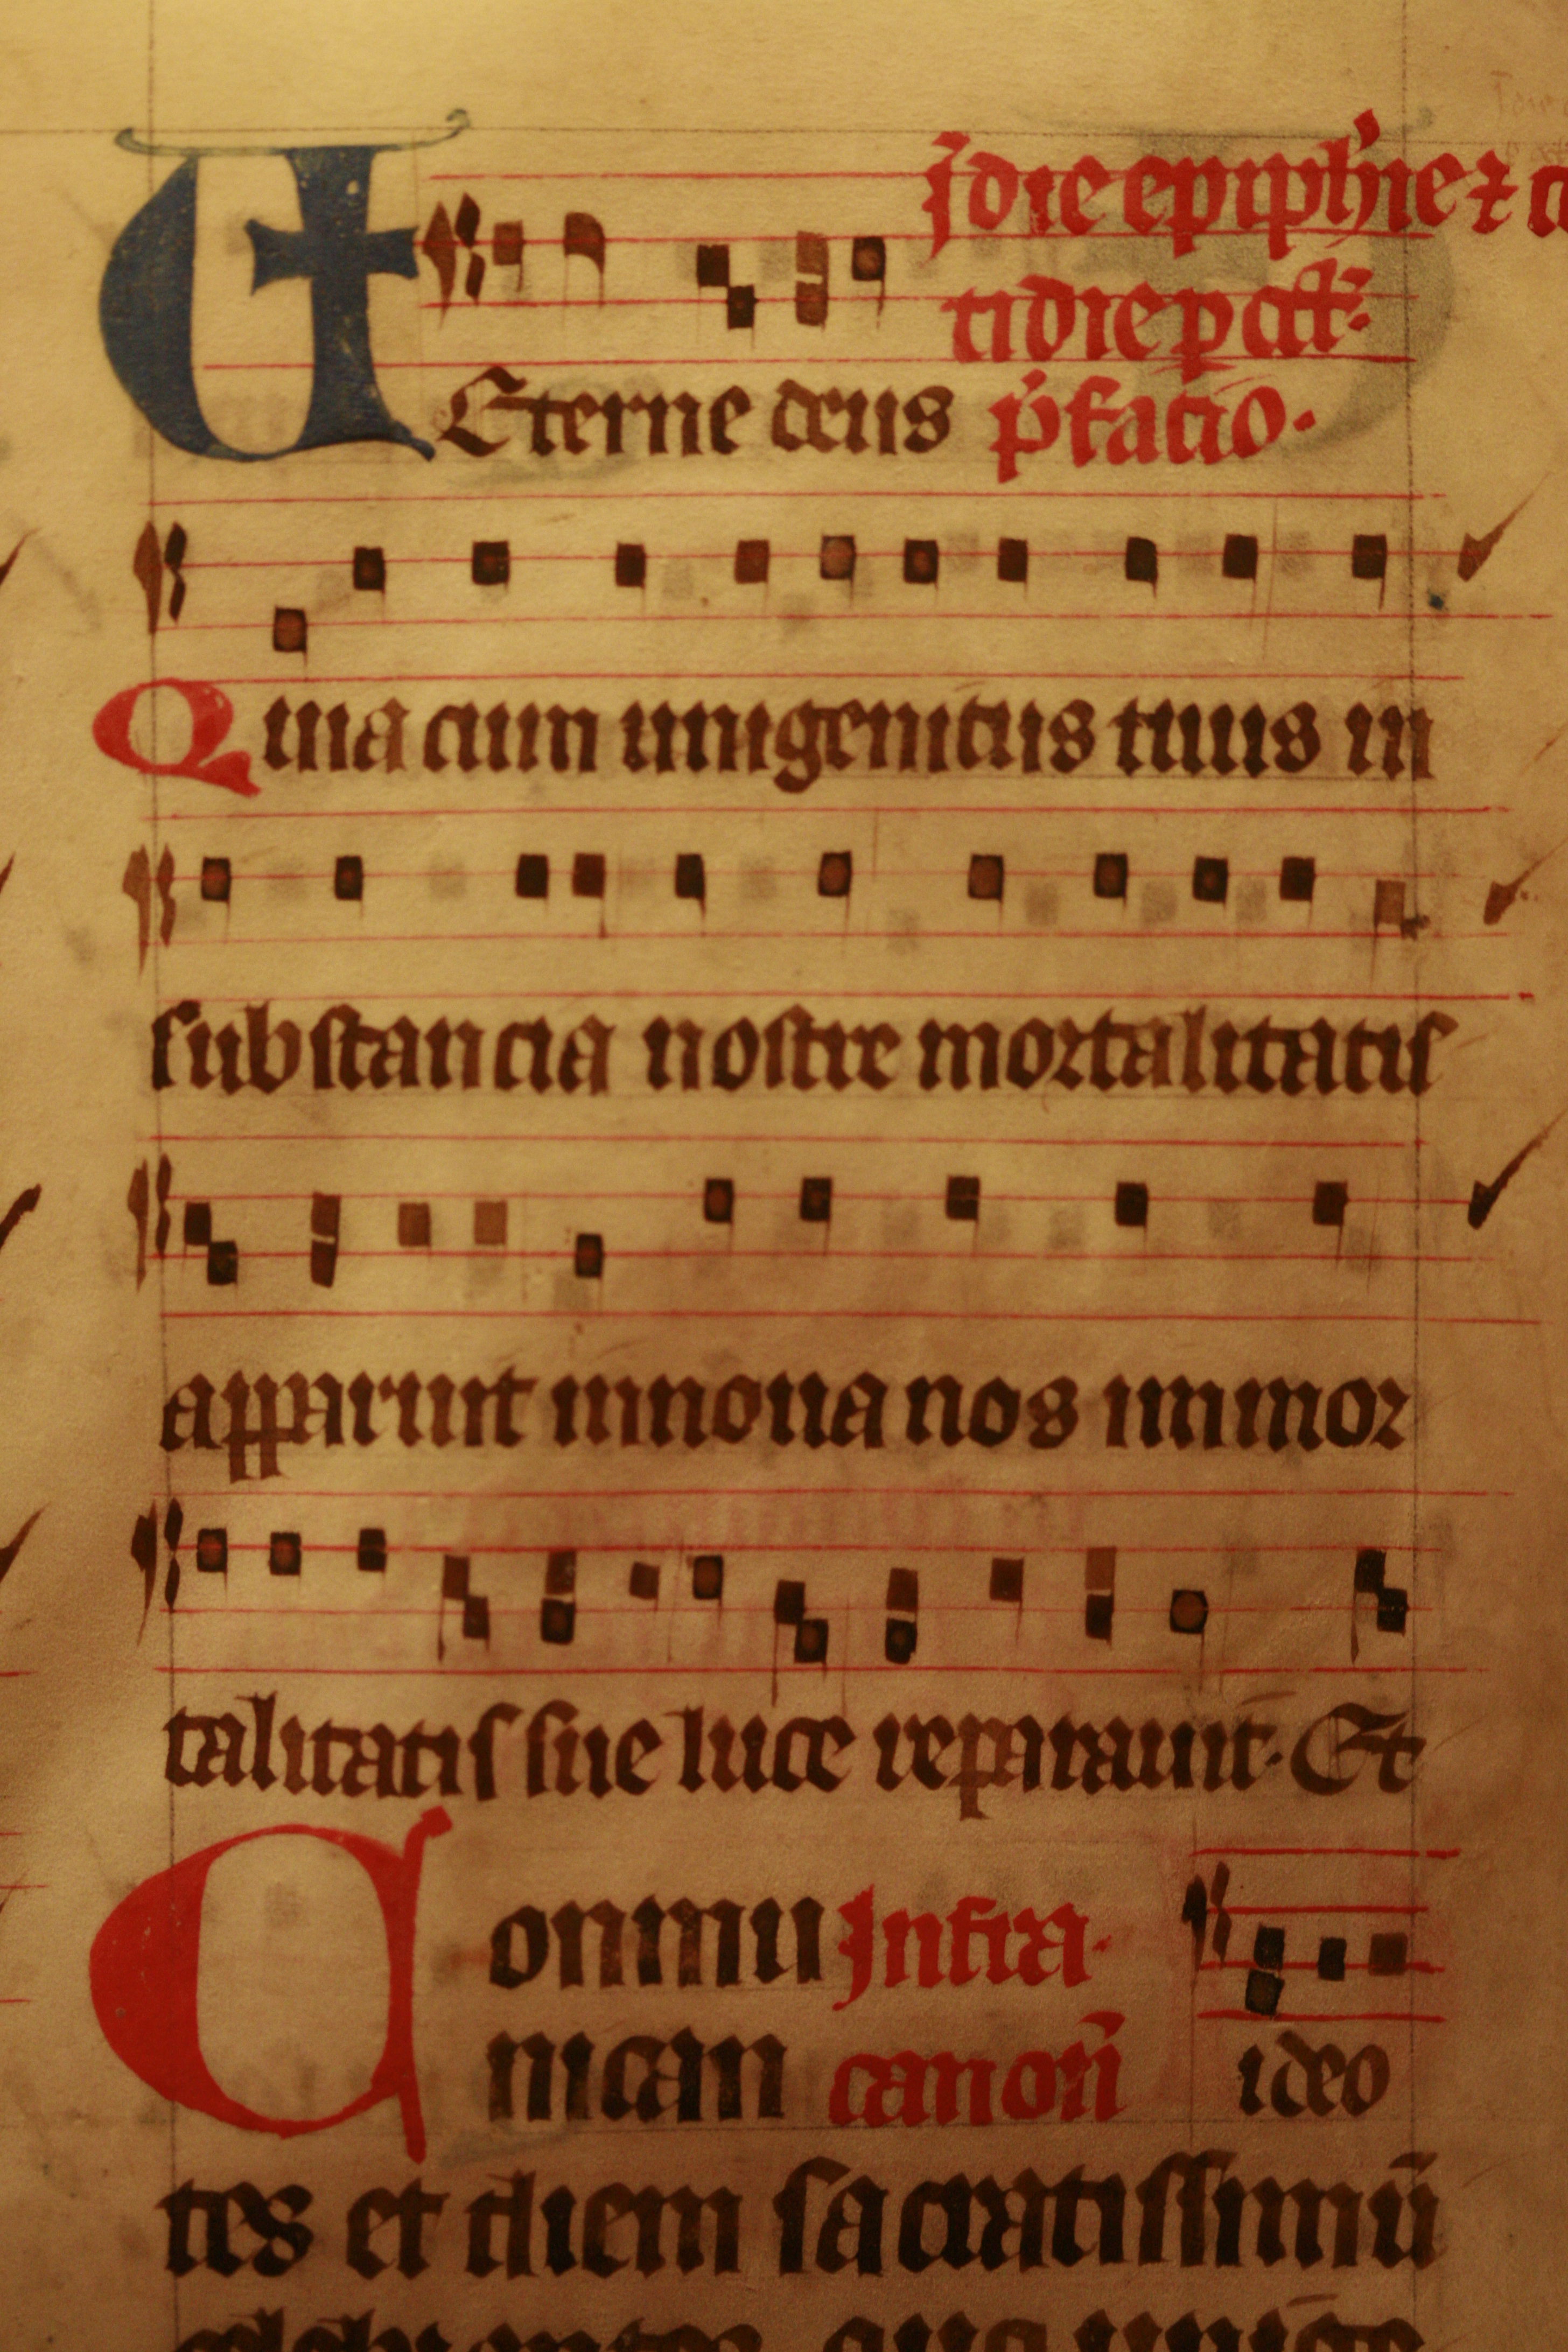 j die epiphie ⁊ co
tidie p oct̄
UEterne deus p̄fatio.
Quia cum unigenitus tuus in
substancia nostre mortalitatis
apparuit innoua nos immor
talitatis sue luce reparauit. Et
Conmu Infra.
nican canoñ ideo
tes et diem sacratissimū
celebrantes quo unige